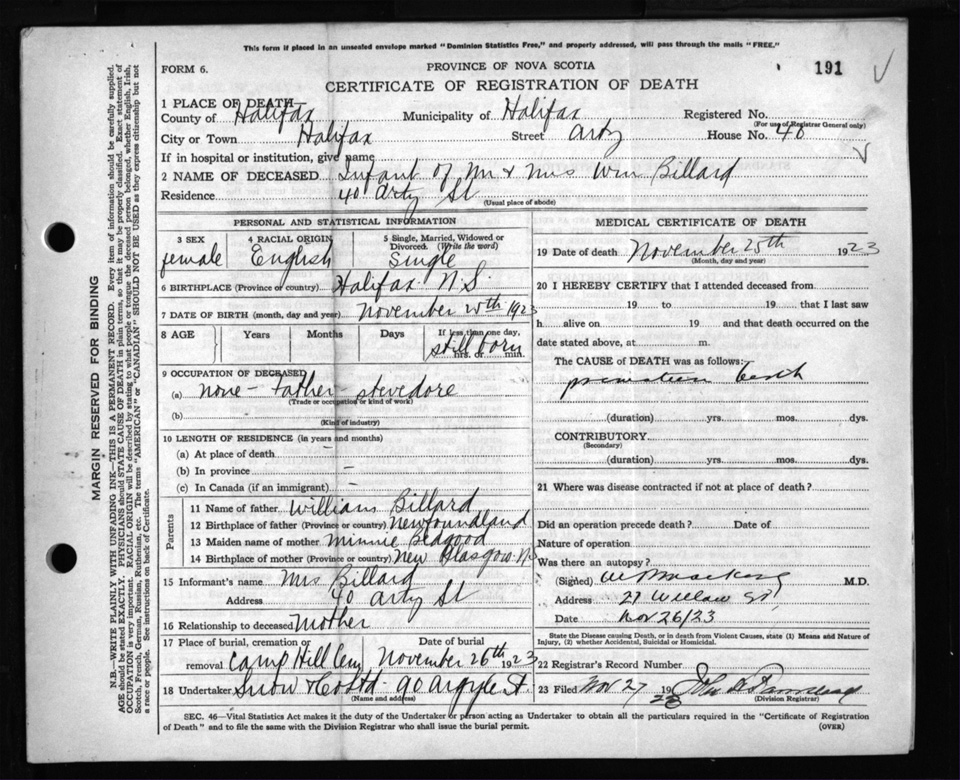 This form if placed in an unsealed envelope marked "Dominion Statistics Free," and properly addressed, will pass through the mails "FREE."
FORM 6.
PROVINCE OF NOVA SCOTIA
191
CERTIFICATE OF REGISTRATION OF DEATH
1 PLACE OF DEATH
County of Halifax Municipality of Halifax Registered No.
(For use of Registrar General only)
City or Town Halifax Street Arty House No. 40
If in hospital or institution, give name
2 NAME OF DECEASED Infant of Mr & Mrs Wm Billard
Residence 40 Arty St
(Usual place of abode)
PERSONAL AND STATISTICAL INFORMATION
3 SEX female
4 RACIAL ORIGIN English
5 Single, Married, Widowed or Divorced. (Write the word) Single
6 BIRTHPLACE (Province or country) Halifax N.S.
7 DATE OF BIRTH (month, day and year) November 25th 1923
8 AGE Years Months Days If less than one day, hrs. or min. still born
9 OCCUPATION OF DECEASED
(a) none - Father - stevedore
(Trade or occupation or kind of work)
(b)
(Kind of industry)
10 LENGTH OF RESIDENCE (in years and months)
(a) At place of death –
(b) In province –
(c) In Canada (if an immigrant) –
Parents
11 Name of father William Billard
12 Birthplace of father (Province or country) Newfoundland
13 Maiden name of mother Minnie Bedgood
14 Birthplace of mother (Province or country) New Glasgow N.S
15 Informant's name Mrs Billard
Address 40 Arty St
16 Relationship to deceased Mother
17 Place of burial, cremation or removal Camp Hill Cem Date of burial November 26th 1923
18 Undertaker Snow & Co Ltd 90 Argyle St.
(Name and address)
MEDICAL CERTIFICATE OF DEATH
19 Date of death November 25th 1923
(Month, day and year)
20 I HEREBY CERTIFY that I attended deceased from
19 to 19 that I last saw
h alive on 19 and that death occurred on the
date stated above, at m.
The CAUSE of DEATH was as follows:
premature birth
(duration) yrs. mos. dys.
CONTRIBUTORY
(Secondary)
(duration) yrs. mos. dys.
21 Where was disease contracted if not at place of death?
Did an operation precede death? Date of
Nature of operation
Was there an autopsy?
(Signed) M.D.
Address 27 Willow St,
Date Nov 26/23
State the Disease causing Death, or in death from Violent Causes, state (1) Means and Nature of
Injury, (2) whether Accidental, Suicidal or Homicidal.
22 Registrar's Record Number
23 Filed Nov 27 1923 John
(Division Registrar)
SEC. 46—Vital Statistics Act makes it the duty of the Undertaker or person acting as Undertaker to obtain all the particulars required in the "Certificate of Registration
of Death" and to file the same with the Division Registrar who shall issue the burial permit. (OVER)
MARGIN RESERVED FOR BINDING
N.B.—WRITE PLAINLY WITH UNFADING INK—THIS IS A PERMANENT RECORD. Every item of information should be carefully supplied.
AGE should be stated EXACTLY. PHYSICIANS should STATE CAUSE OF DEATH in plain terms, so that it may be properly classified. Exact statement of
OCCUPATION is very important. RACIAL ORIGIN will be described by stating to what people or tongue the deceased person belonged, whether English, Irish,
Scotch, French, German, Russian, Ruthenian, etc. The terms "AMERICAN" or "CANADIAN" SHOULD NOT BE USED as they express citizenship but not
a race or people. See instructions on back of Certificate.